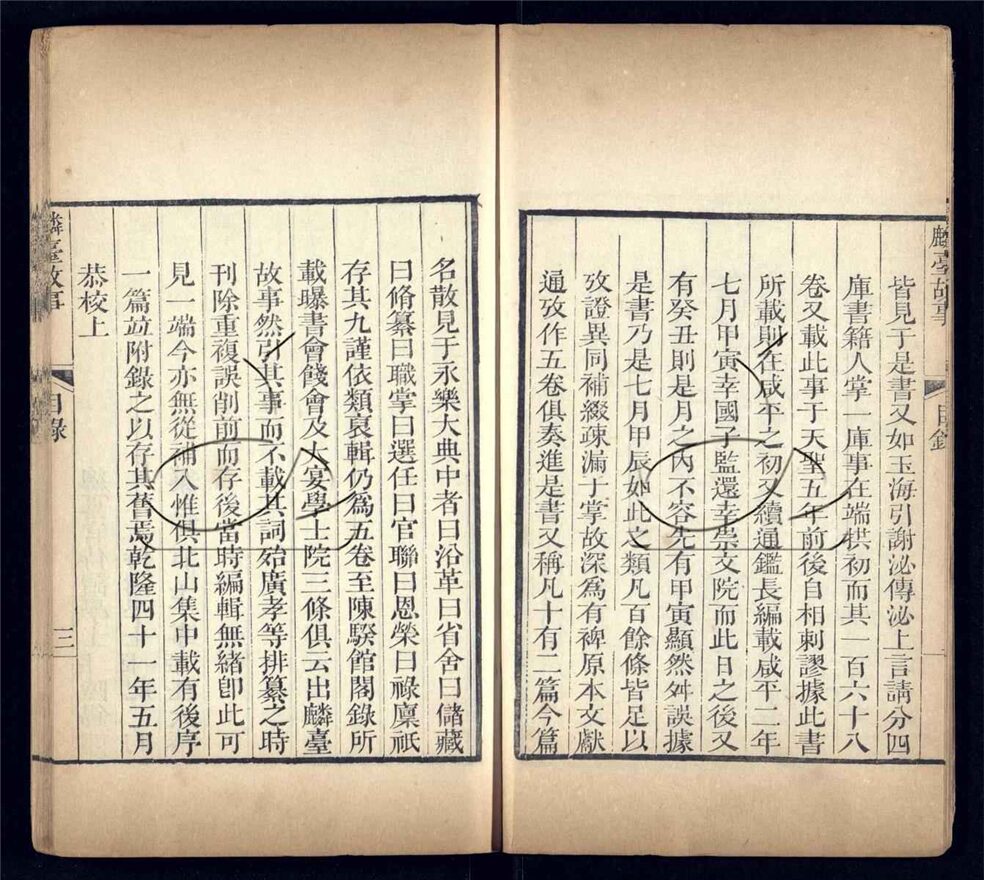 麟臺故事
目錄
皆見于是書又如玉海引謝泌傳泌上言請分四
庫書籍人掌一庫事在端拱初而其一百六十八
卷又載此事于天聖五年前後自相刺謬據此書
所載則在咸平之初又續通鑑長編載咸平二年
七月甲寅幸國子監還幸崇文院而此日之後又
有癸丑則是月之內不容先有甲寅顯然舛誤據
是書乃是七月甲辰如此之類凡百餘條皆足以
攷證異同補綴疎漏于掌故深爲有裨原本文獻
通攷作五卷俱奏進是書又稱凡十有二篇今篇
名散見于永樂大典中者曰沿革曰省舍曰儲藏
曰脩纂曰職掌曰選任曰官聯曰恩榮曰祿廩祇
存其九謹依類裒輯仍爲五卷至陳騤館閣錄所
載曝書會餞會及大宴學士院三條俱云出麟臺
故事然引其事而不載其詞殆廣孝等排纂之時
刊除重複誤削前而存後當時編輯無緒卽此可
見一端今亦無從補入惟俱北山集中載有後序
一篇竝附錄之以存其舊焉乾隆四十一年五月
恭校上
麟臺故事
目錄
三